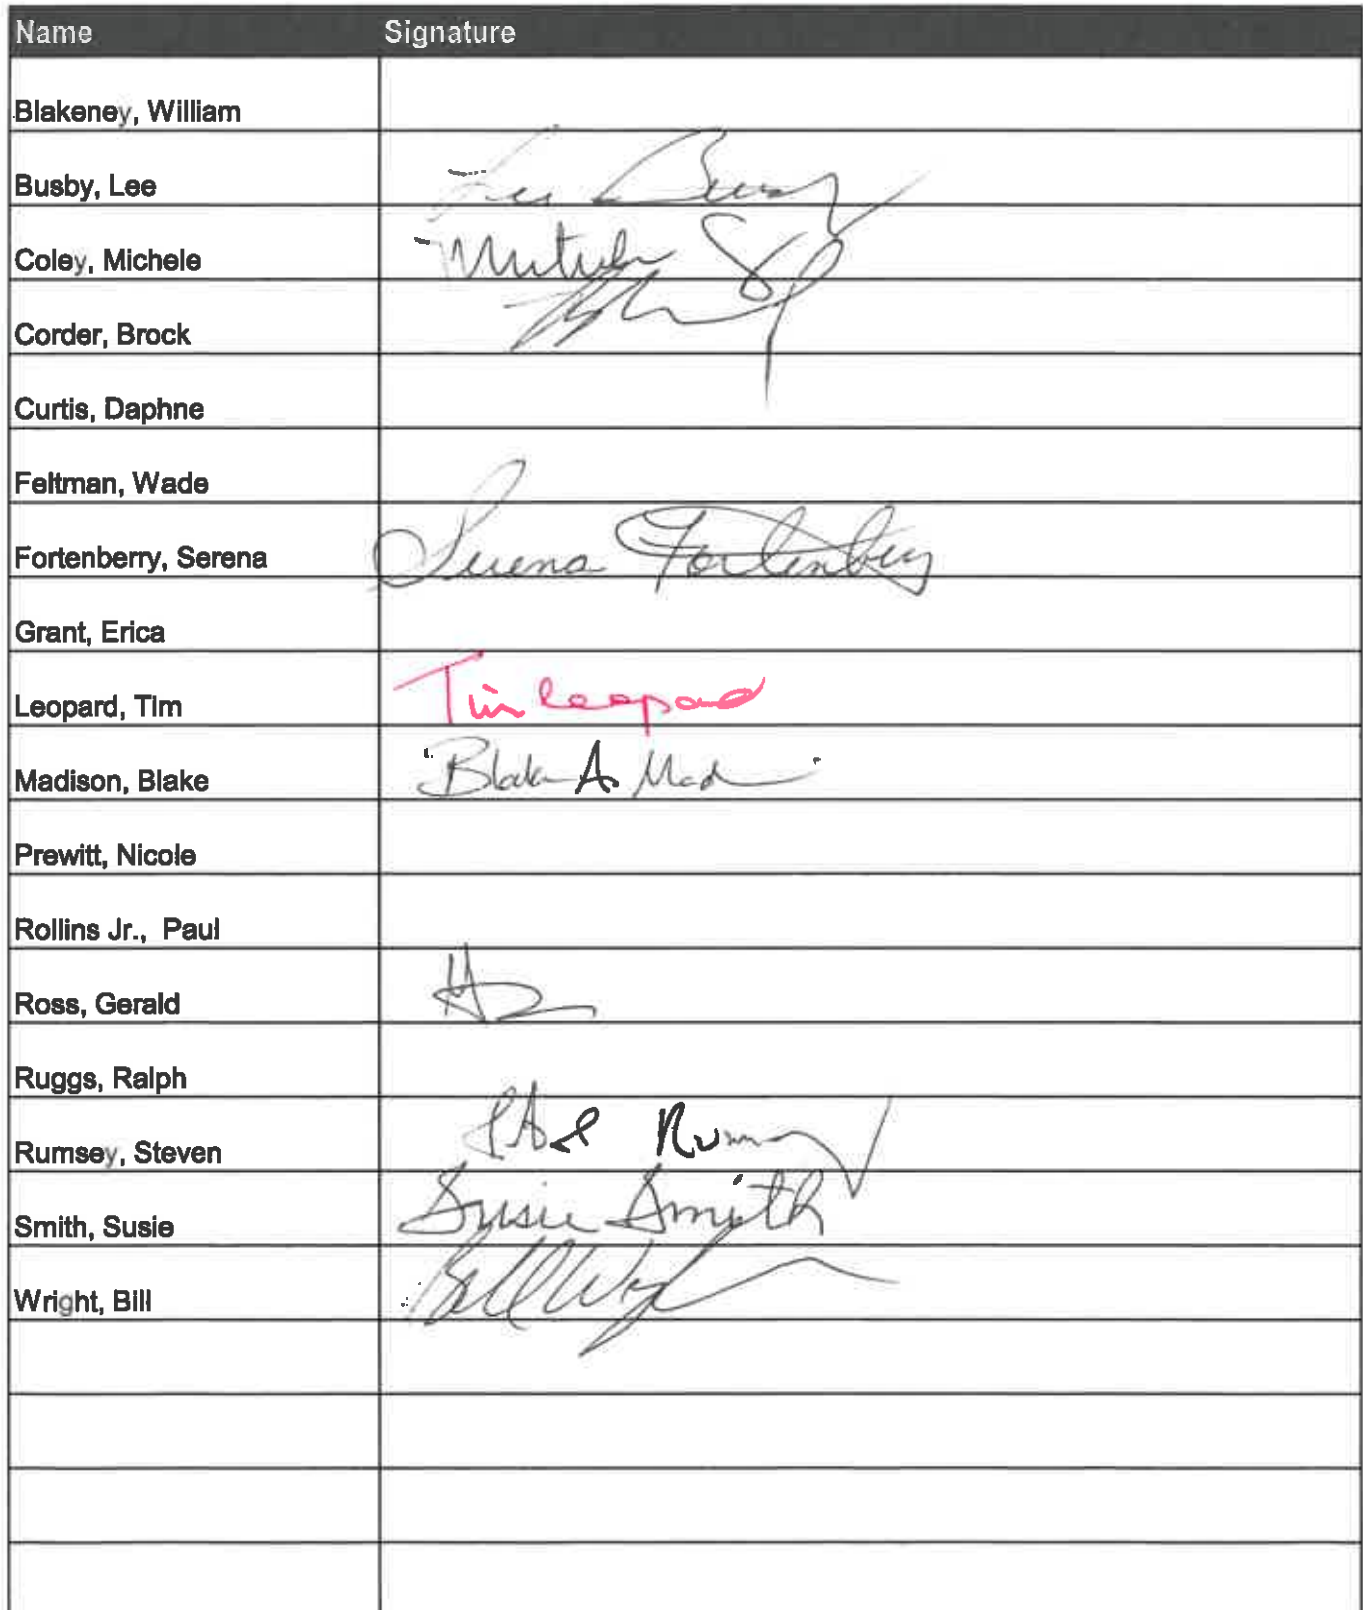 Name Signature
Blakeney, William
Busby, Lee Lee Busby
Coley, Michele
Corder, Brock
Curtis, Daphne
Feltman, Wade
Fortenberry, Serena Serena Fortenberry
Grant, Erica
Leopard, Tim Tim Leopard
Madison, Blake Blake A Mad
Prewitt, Nicole
Rollins Jr., Paul
Ross, Gerald
Ruggs, Ralph
Rumsey, Steven Rumsey
Smith, Susie Susie Smith
Wright, Bill Bill Wright